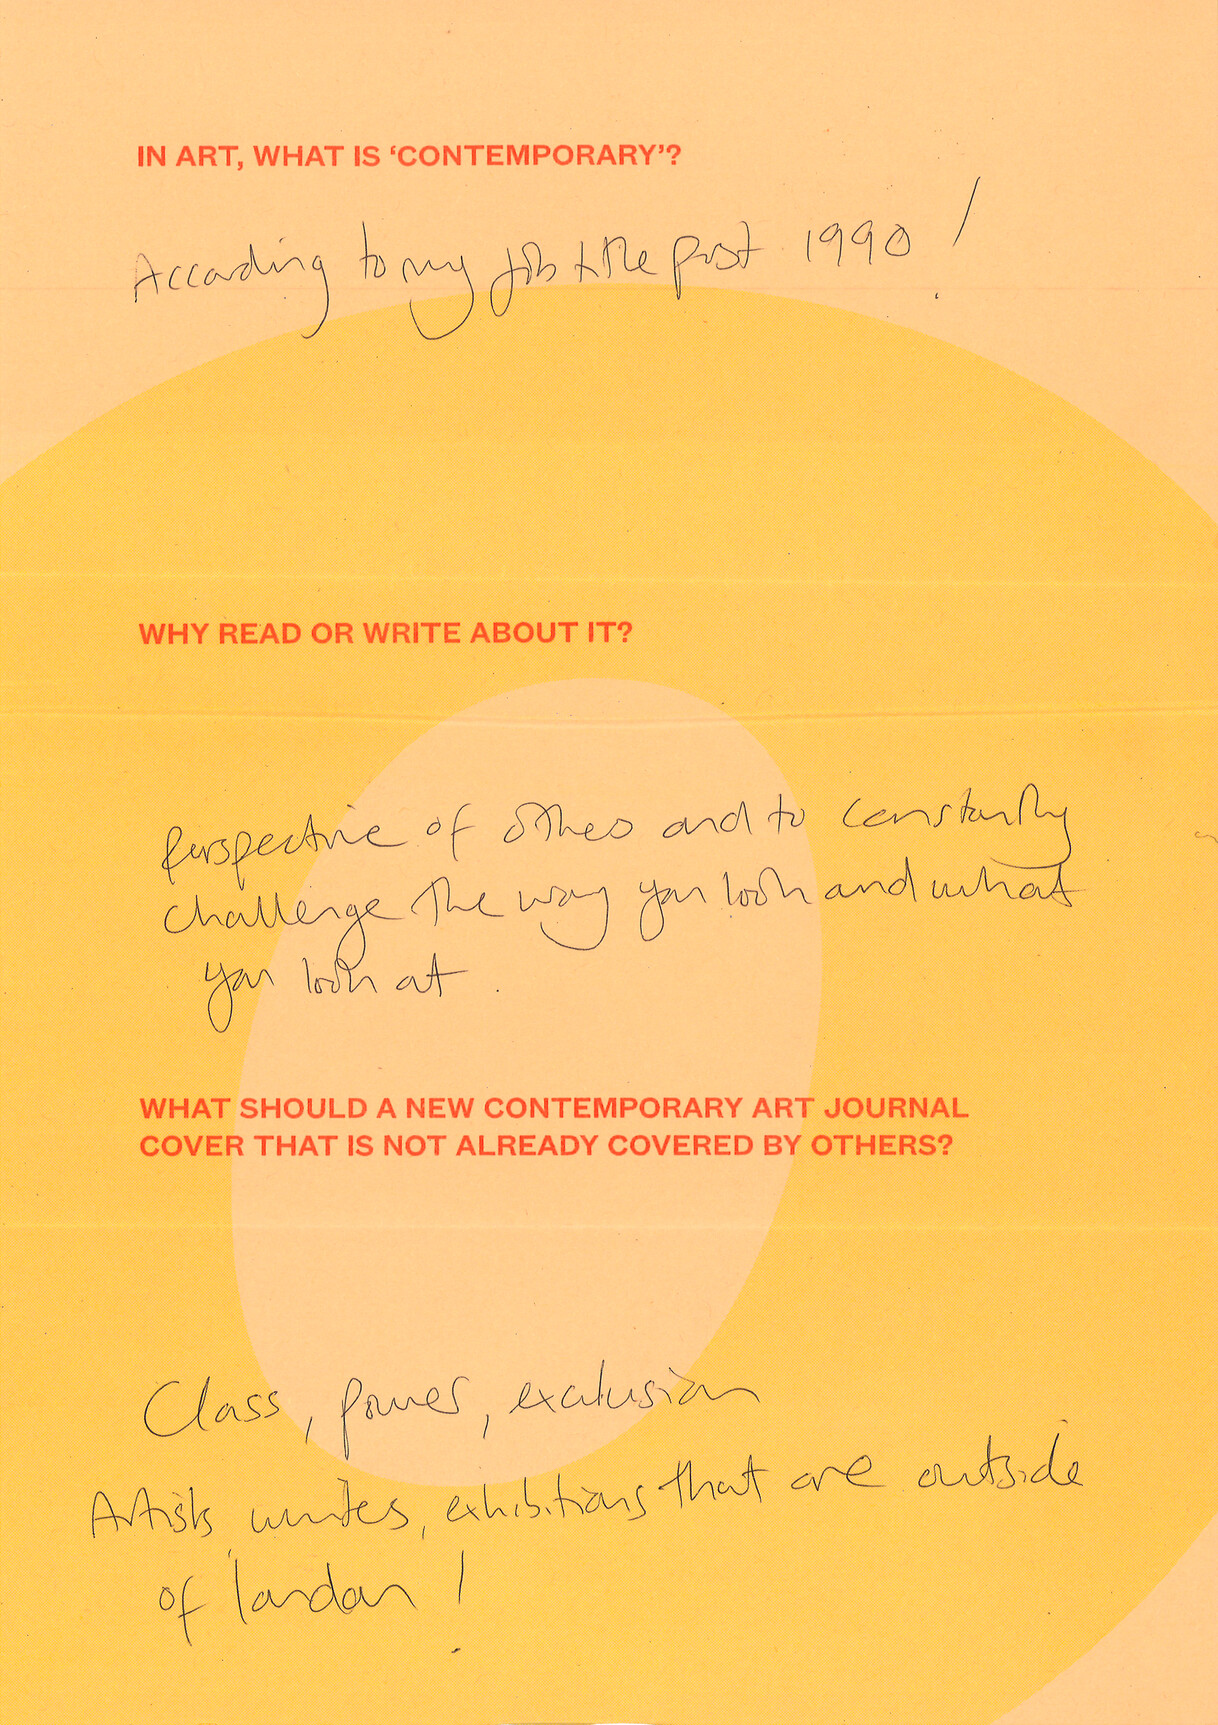 IN ART, WHAT IS ‘CONTEMPORARY’?
According to my job title post 1990 !
WHY READ OR WRITE ABOUT IT?
Perspective of others and to constantly
challenge the way you look and what
you look at .
WHAT SHOULD A NEW CONTEMPORARY ART JOURNAL
COVER THAT IS NOT ALREADY COVERED BY OTHERS?
Class, power, exclusion
Artists, writers, exhibitions that are outside
of london !